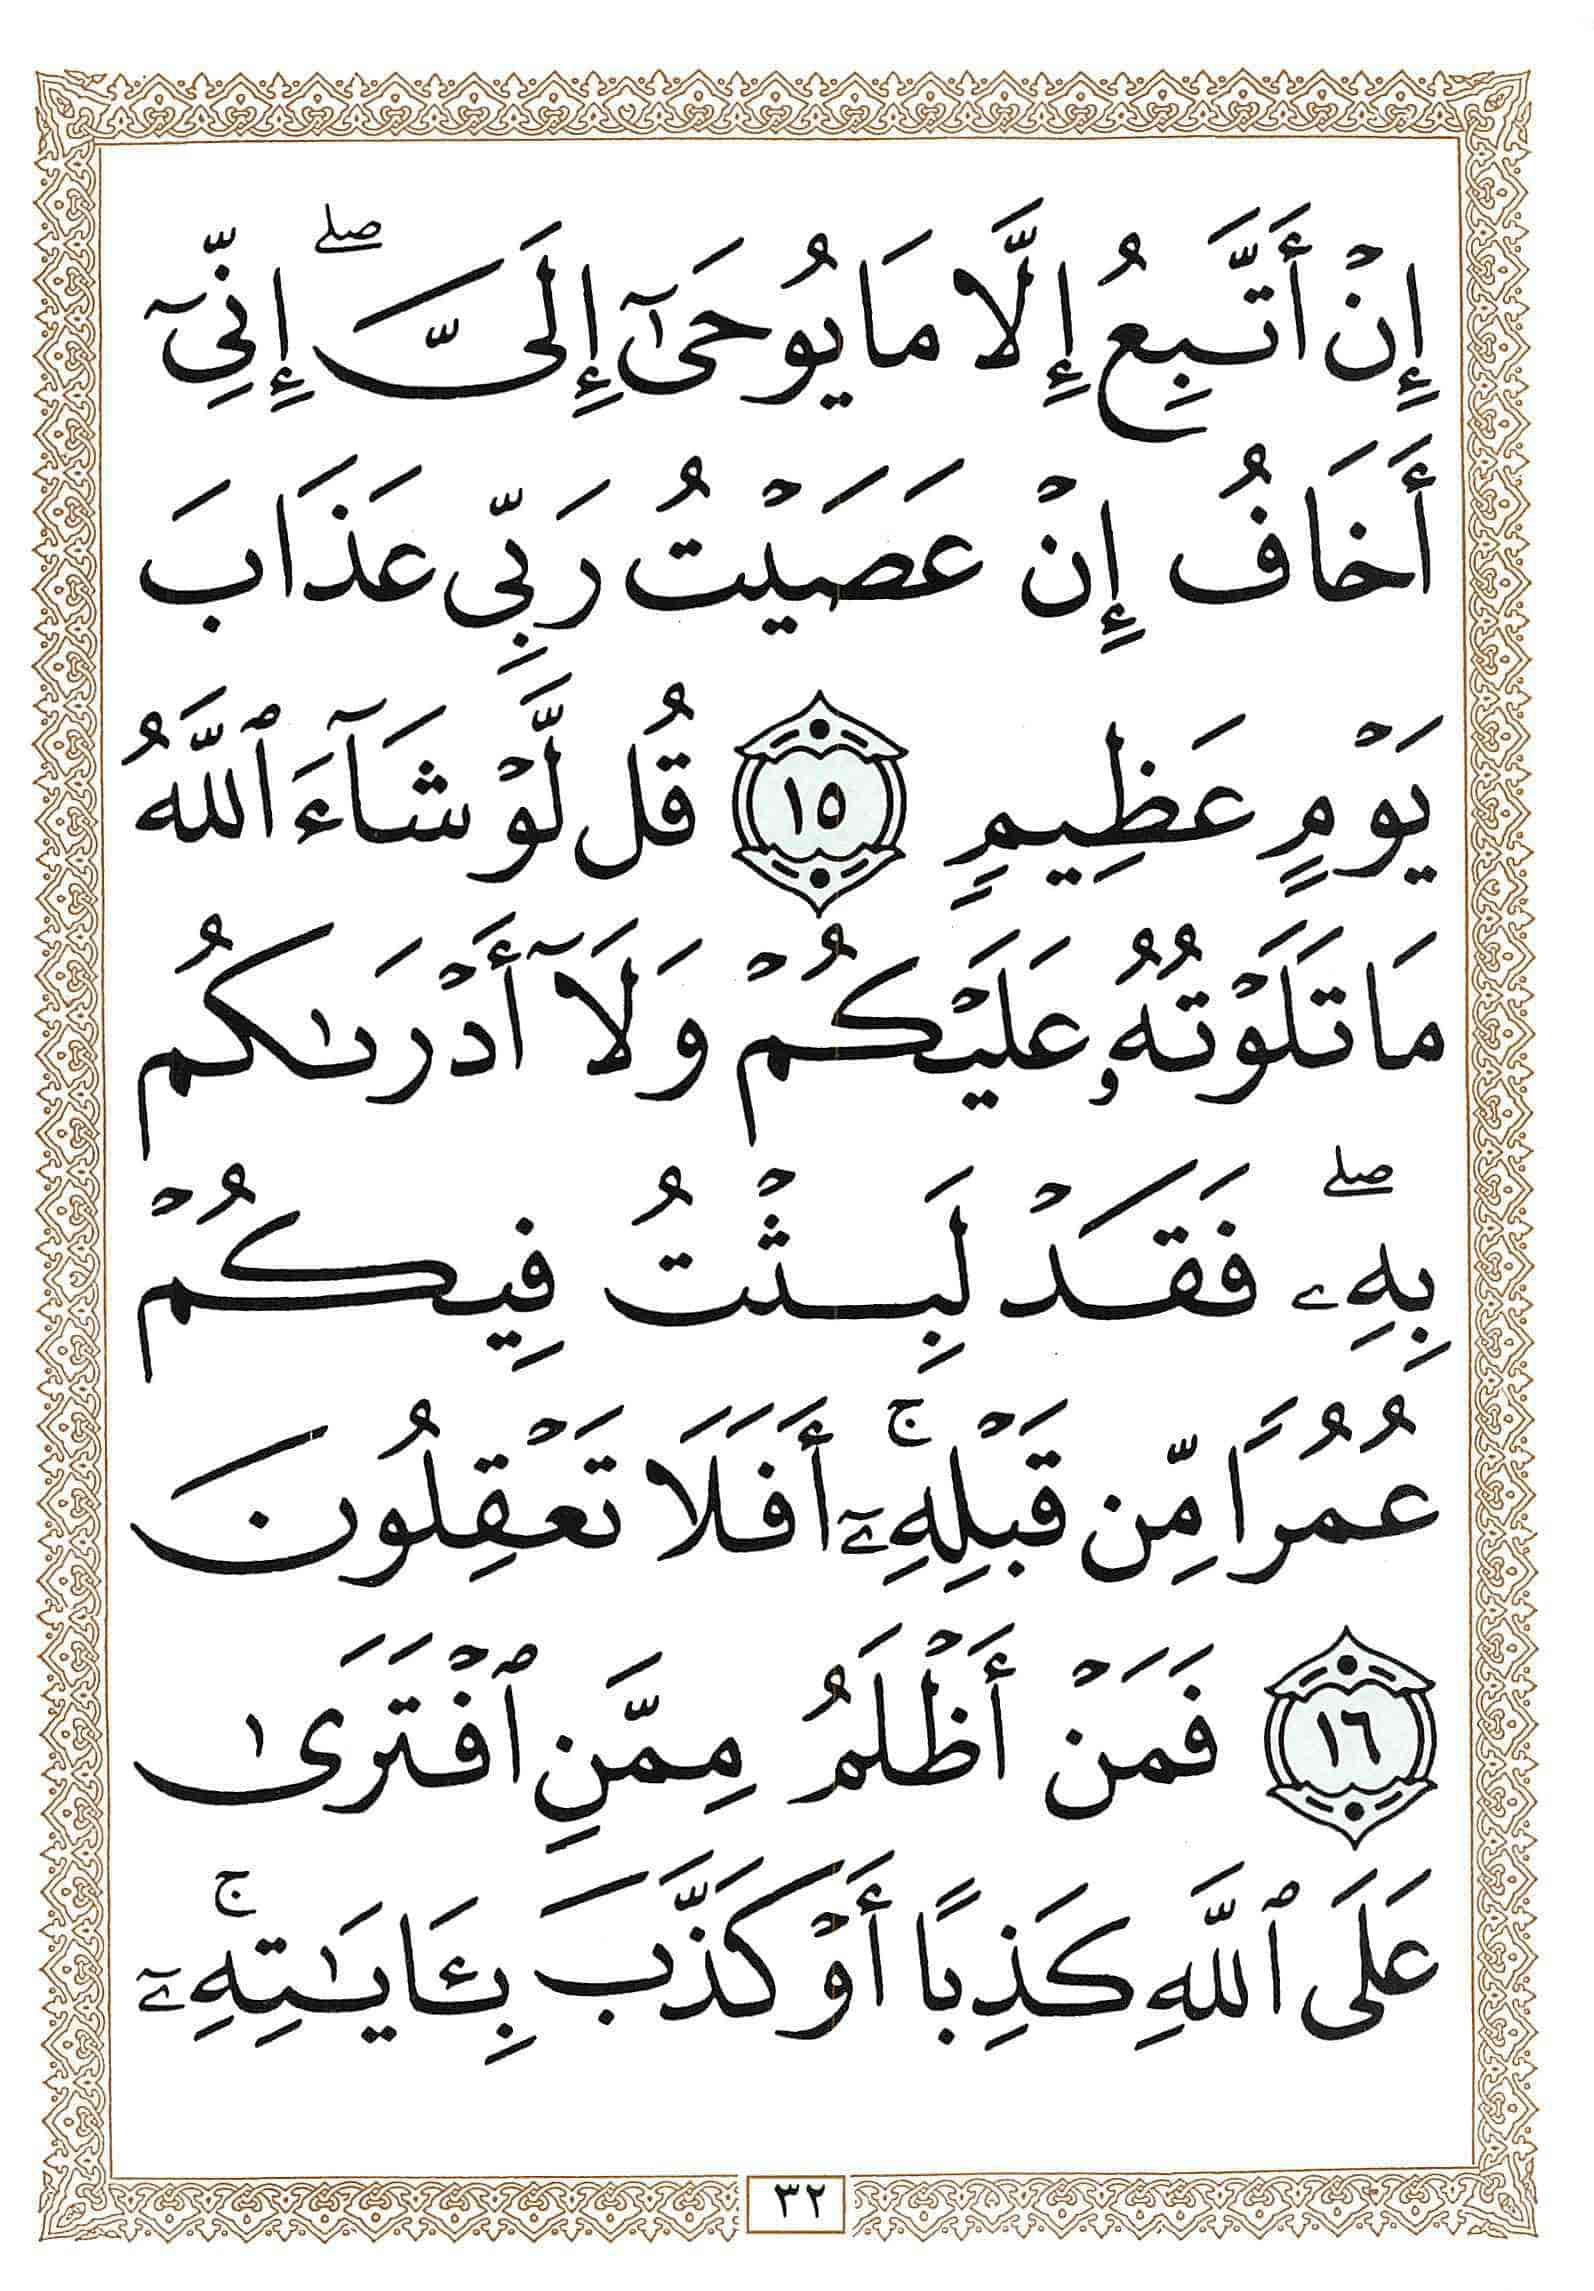 إِنْ أَتَّبِعُ إِلَّا مَا يُوحَىٰٓ إِلَىَّ ۖ إِنِّىٓ
أَخَافُ إِنْ عَصَيْتُ رَبِّى عَذَابَ
يَوْمٍ عَظِيمٍ ١٥ قُل لَّوْ شَآءَ ٱللَّهُ
مَا تَلَوْتُهُۥ عَلَيْكُمْ وَلَآ أَدْرَىٰكُم
بِهِۦ ۖ فَقَدْ لَبِثْتُ فِيكُمْ
عُمُرًا مِّن قَبْلِهِۦٓ ۚ أَفَلَا تَعْقِلُونَ
١٦ فَمَنْ أَظْلَمُ مِمَّنِ ٱفْتَرَىٰ
عَلَى ٱللَّهِ كَذِبًا أَوْ كَذَّبَ بِـَٔايَـٰتِهِۦٓ ۚ
٣٢